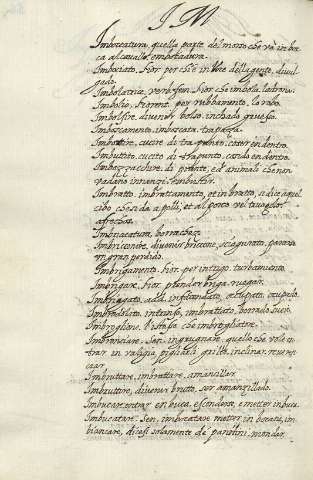 I M
Imboccatura, quella parte del morso che và in boc
ca al cavallo, embocadura.
Imbociato, Fior. per ch'è in voce della gente, divul
gado.
Imbolatrice, verb. fem. Fior. che imbola, ladrona.
Imbolio, Fiorent. per rubbamento, lo rabo.
Imbolsire, divenir bolso, inchado
Imboscamento, imboscata,
Imbottire, cucire di trapunto, coser en dentro.
Imbottito, cucito di trapunto, cosido en dentro.
Imbozzacchire, di piante, ed animali che non
vadano innanzi,
Imbratto, imbrattamento, et imbratto, si dice aquel
cibo che si da a polli, et al porco
Imbriacatura, borrachez.
Imbricconire, divenir briccone, sciagurato, pararse
un gran perdido.
Imbrigamento, Fior. per intrigo, turbamiento.
Imbrigare, Fior. prender briga,
Imbrigato, add. infaccendato, occupato, ocupado.
Imbrodolato, intriso, imbrattato, borrado, sucio.
Imbroglione, l'istesso che imbrogliatore.
Imbronciare, Sen. ingrugnare, quello che vole en
trar in valigia, pigliar il grillo, inclinar,
car.
Imbruttare, imbrattare, amancillar.
Imbruttire, divenir brutto, ser amanzillado.
Imbucare, entrar en buca, esconderse, e metter in buca.
Imbucatare, Sen. imbucatare metter in bucato, im
biancare, dicesi solamente de' pannilini, mondar.